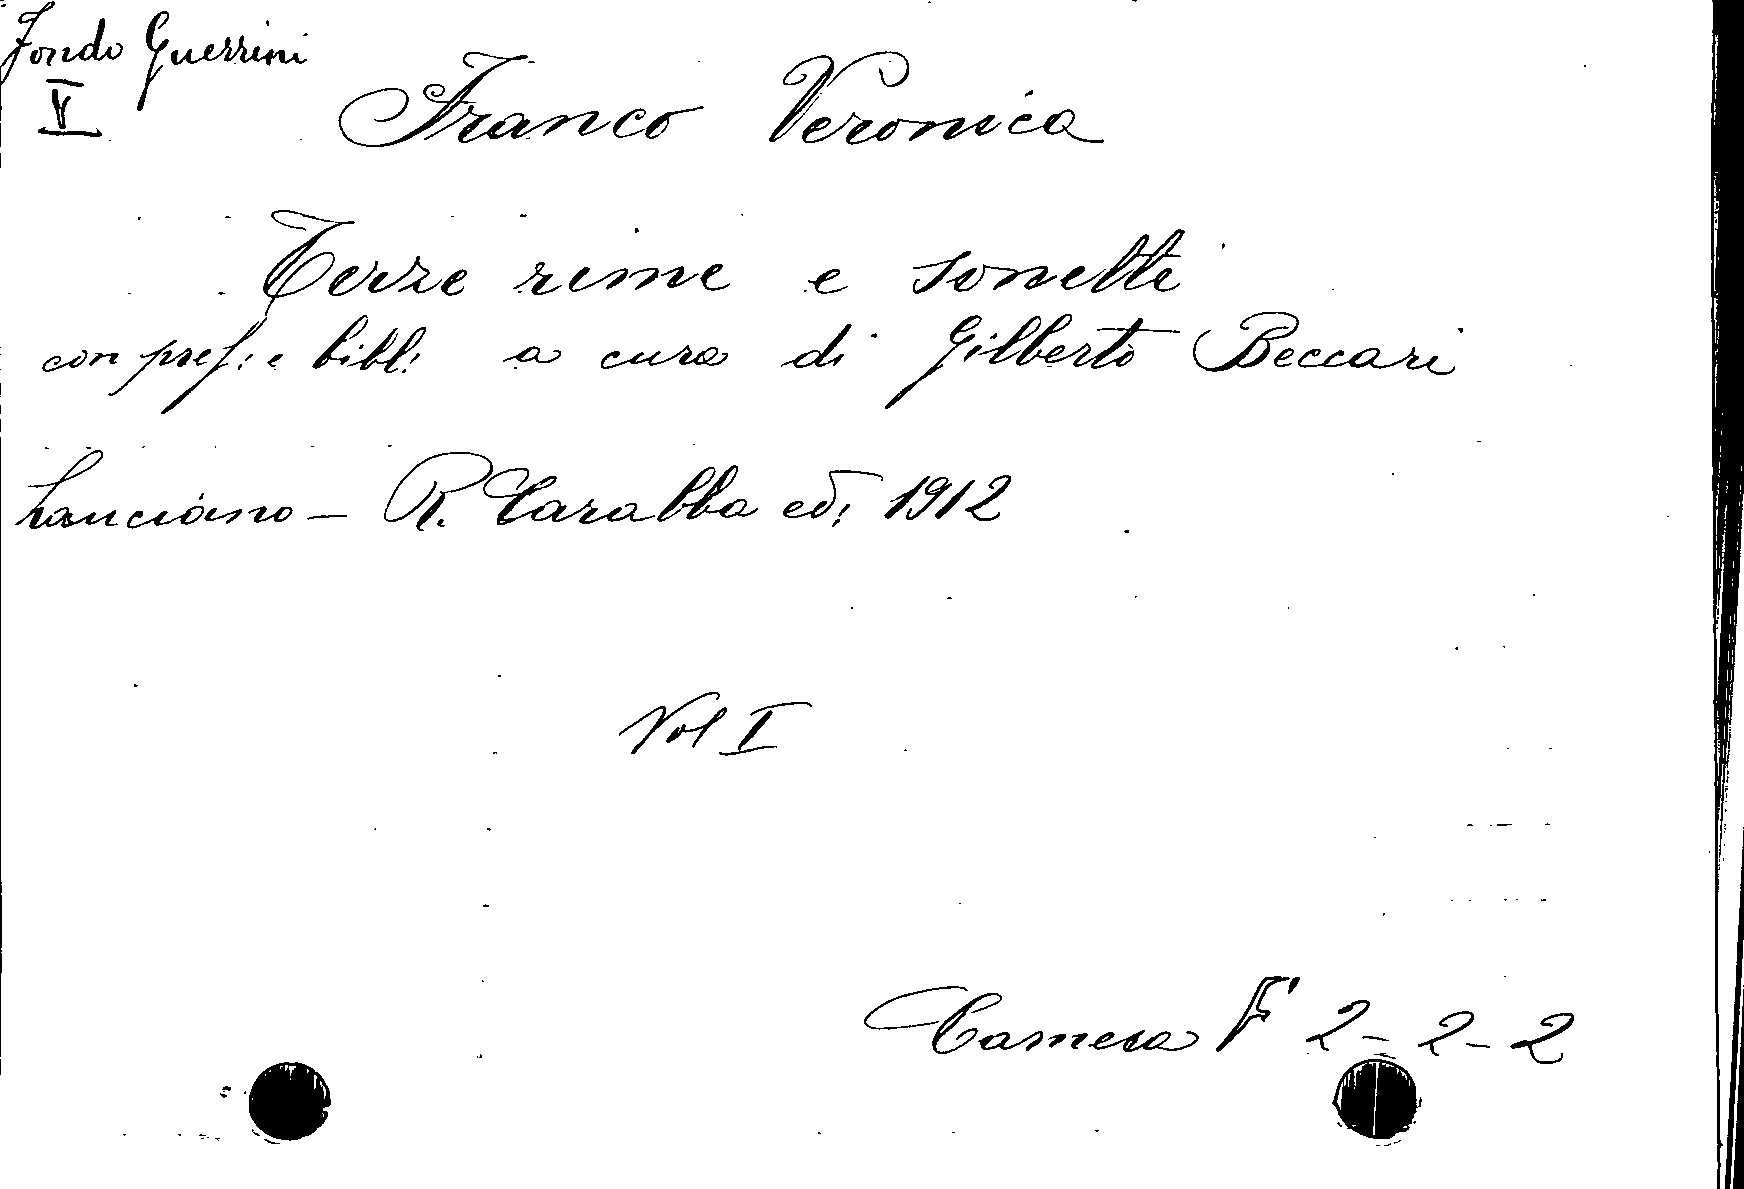 Fondo Guerrini
V
Franco Veronica
Terze rime e sonetti
con pref: e bibl: a cura di Gilberto Beccari
Lanciano - R. Carabba ed: 1912
Vol I
Camera F' 2-2-2